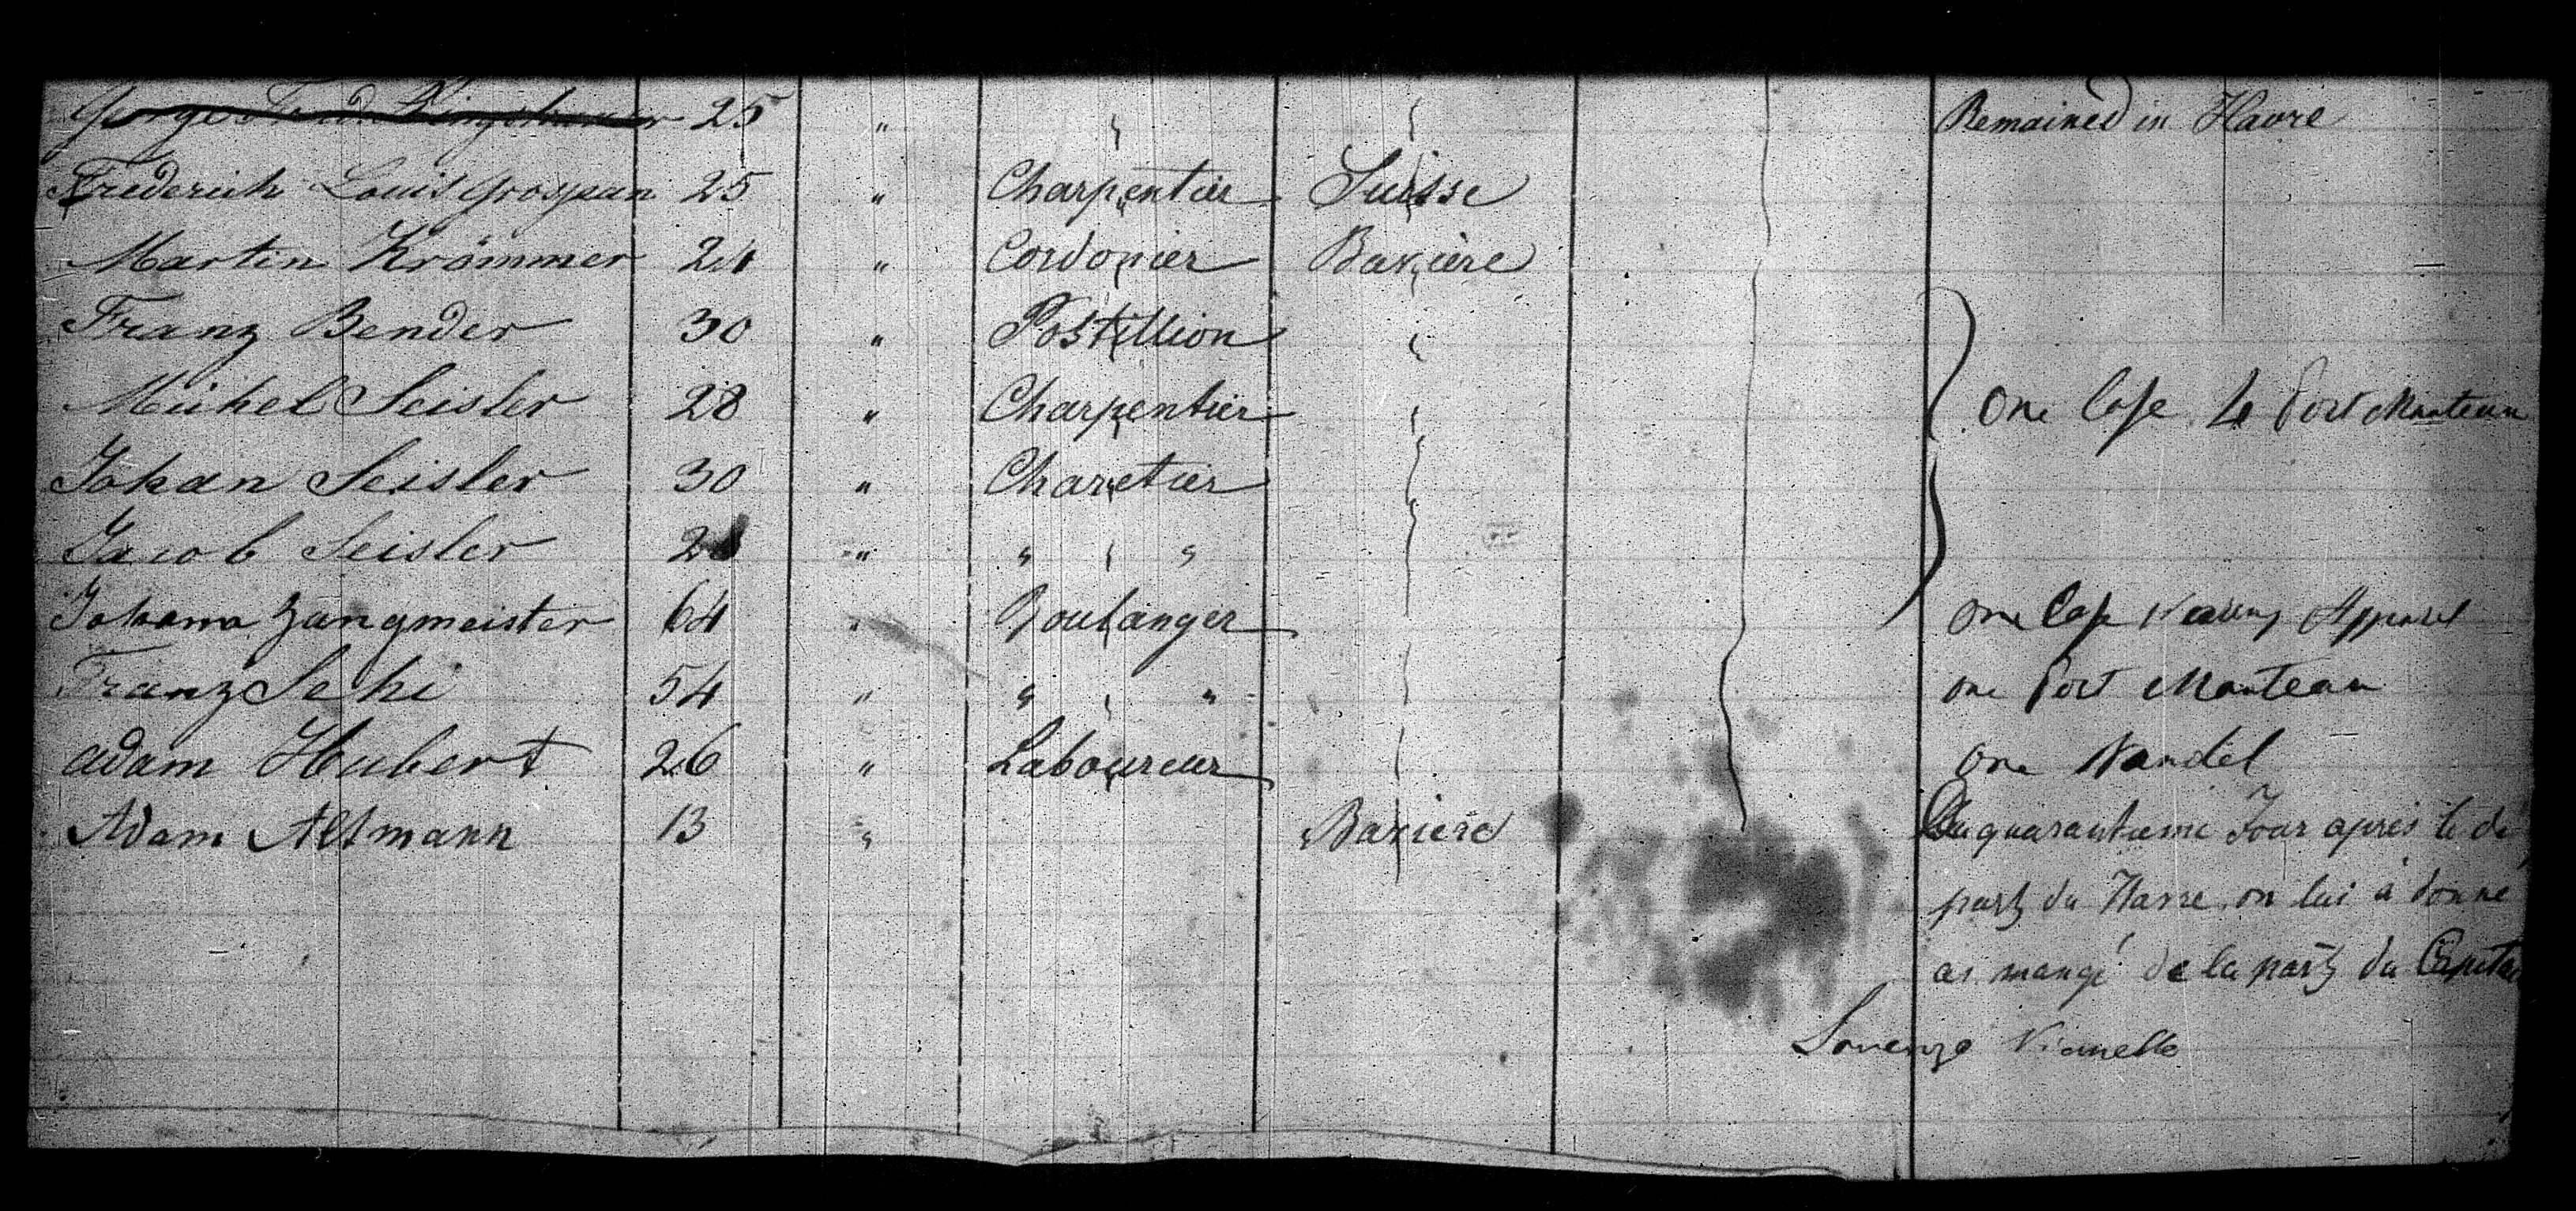 Georges Fred 25 " Remained in Havre
Frederich Louis Grosjean 25 " Charpentier Suisse
Martin Krämmer 24 " Cordonier Baviere
Franz Bender 30 " Postillion
Michel Seisler 28 " Charpentier One Case 4 Port Manteau
Johan Seisler 30 " Charetier
Jacob Seisler " " "
Johanna Zangmeister 64 " Boulanger One Case Wearing Apparel
Franz Sehi 54 " " " one Port Manteau
Adam Hubert 26 " Laboureur One
Adam Altmann 13 " Baviere quarantieme Jour apres le de
part du Havre on lui à donné
a mangé de la part du Capitai
Lorenzo Vianello